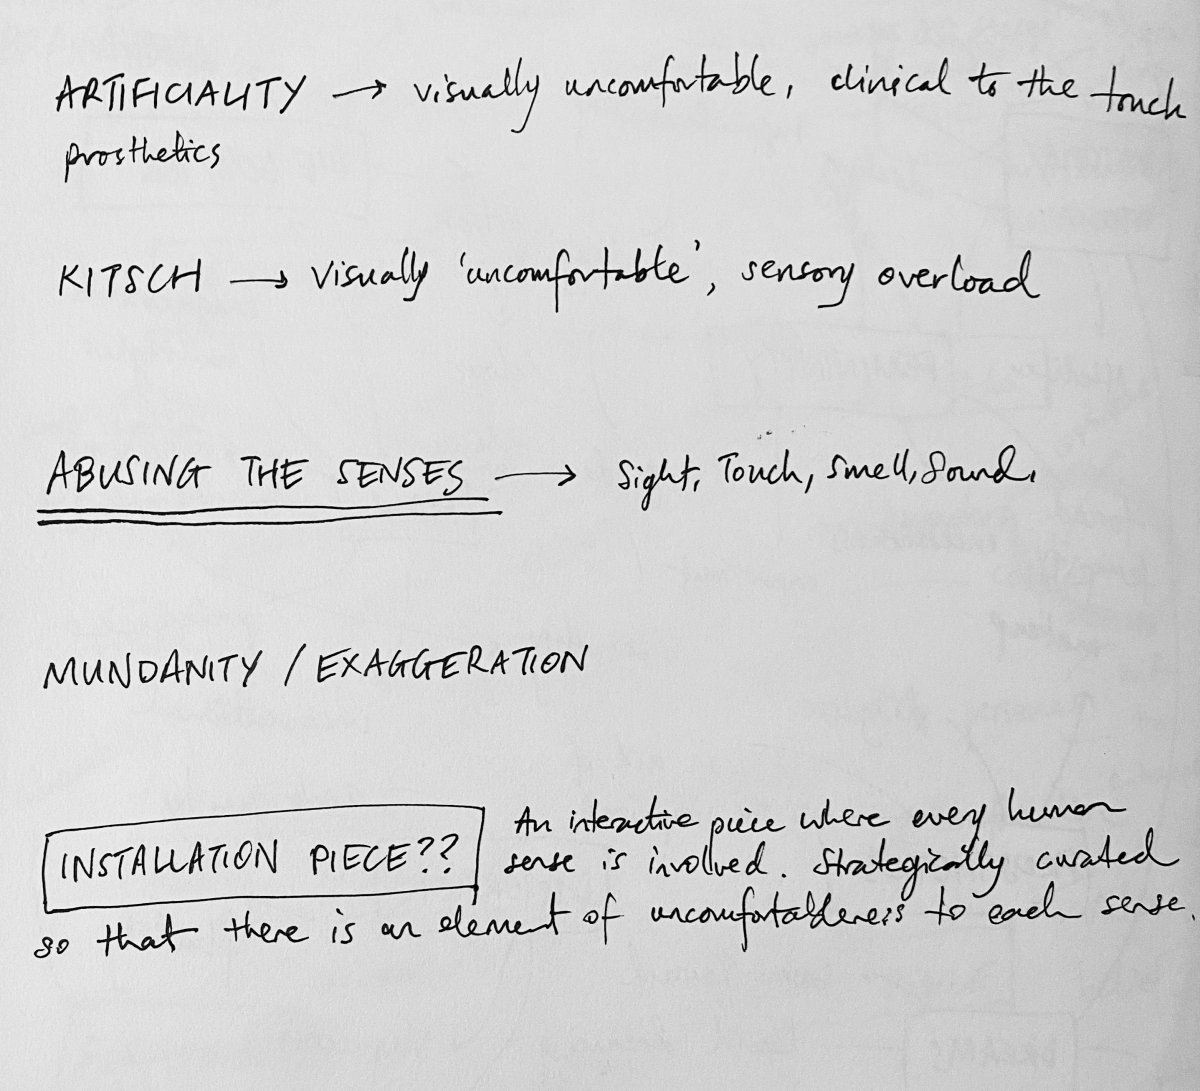 ARTIFICIALITY → visually uncomfortable, clinical to the touch
prosthetics
KITSCH → visually 'uncomfortable', sensory overload
ABUSING THE SENSES → Sight, Touch, Smell, Sound.
MUNDANITY / EXAGGERATION
INSTALLATION PIECE?? An interactive piece where every human
sense is involved. Strategically curated
so that there is an element of uncomfortableness to each sense.